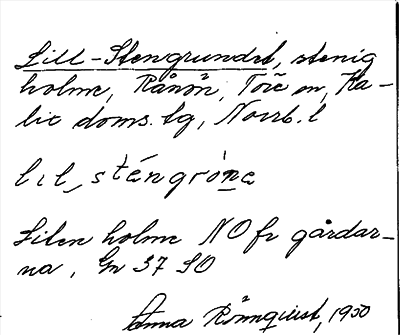 Lill-Stengrundet, stenig
holme, Rånön, Töre sn, Ka-
lix doms. lg, Norrb. l
lıl sténgrònə
Liten holme NO fr gårdar-
na, Gn 37 SO
Anna Rönnqvist, 1930